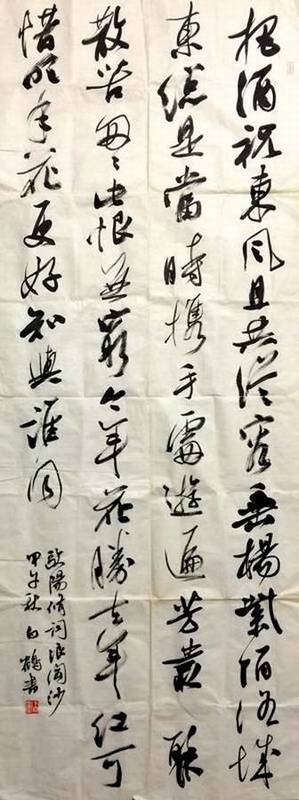 把酒祝東風且共從容垂楊紫陌洛城
東總是當時携手處遊遍芳叢聚
散苦匆々此恨無窮今年花勝去年紅可
惜明年花更好知與誰同
歐陽修詞浪淘沙
甲午秋白鶴書